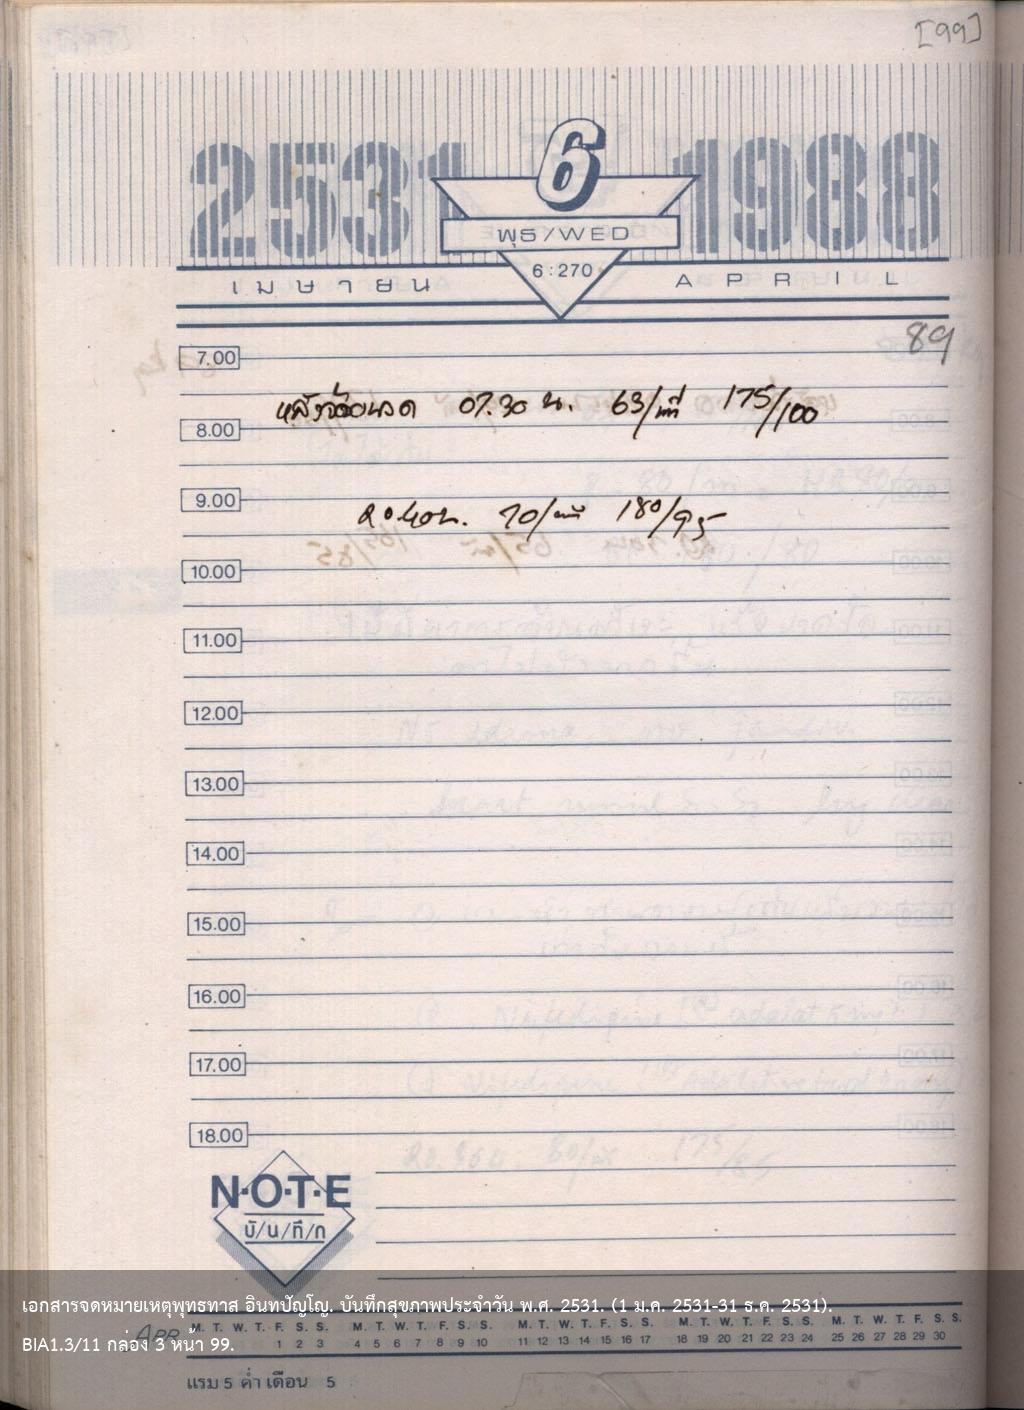 [99]
2531
6
1988
พุธ/WED
6:270
เมษายน
APRIL
89
7.00
07.30 น. 63/นาที 175/100
8.00
9.00
20.40น. 70/นาที 180/95
10.00
11.00
12.00
13.00
14.00
15.00
16.00
17.00
18.00
N·O·T·E
บั/น/ทึ/ก
เอกสารจดหมายเหตุพุทธทาส อินทปัญโญ. บันทึกสุขภาพประจำวัน พ.ศ. 2531. (1 ม.ค. 2531-31 ธ.ค. 2531).
APR M. T. W. T. F. S. S. M. T. W. T. F. S. S. M. T. W. T. F. S. S. M. T. W. T. F. S. S. M. T. W. T. F. S. S.
1 2 3 4 5 6 7 8 9 10 11 12 13 14 15 16 17 18 19 20 21 22 23 24 25 26 27 28 29 30
BIA1.3/11 กล่อง 3 หน้า 99.
แรม 5 ค่ำ เดือน 5